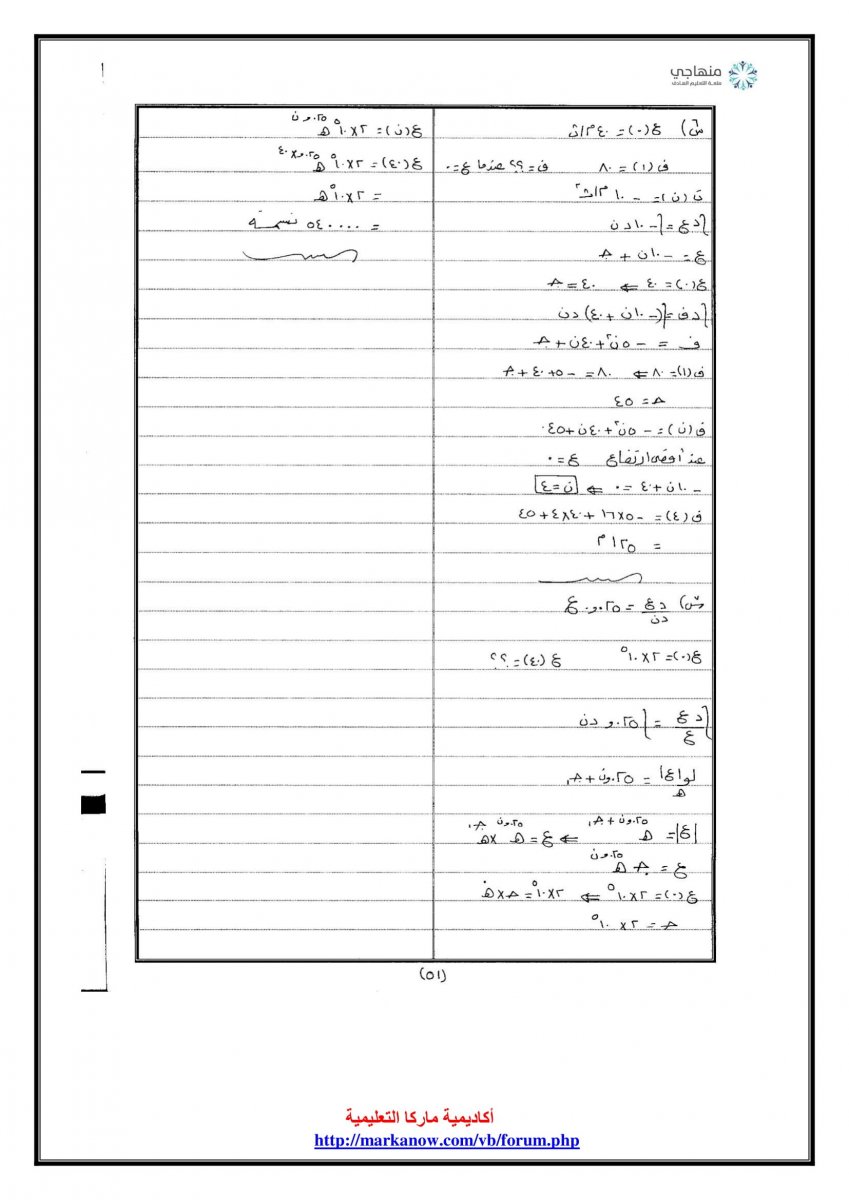 منهاجي
متعة التعليم الهادف
س٦) ع(٠) = ٤٠ م/ث
ف(١) = ٨٠ ف = ؟؟ عندما ع = ٠
ت(ن) = -١٠ م/ث٢
∫دع = ∫-١٠ دن
ع = -١٠ن + جـ
ع(٠) = ٤٠ ⇐ جـ = ٤٠
∫دف = ∫(-١٠ن + ٤٠) دن
ف = -٥ن٢ + ٤٠ن + جـ
ف(١) = ٨٠ ⇐ ٨٠ = -٥ + ٤٠ + جـ
جـ = ٤٥
ف(ن) = -٥ن٢ + ٤٠ن + ٤٥
عند أقصى ارتفاع ع = ٠
-١٠ن + ٤٠ = ٠ ⇐ ن = ٤
ف(٤) = -٥×١٦ + ٤٠×٤ + ٤٥
= ١٢٥ م
دع/دن = ٠,٠٢٥ ع
ع(٠) = ٢×١٠^٥ ع(٤٠) = ؟؟
∫دع/ع = ∫٠,٠٢٥ دن
لو_هـ|ع| = ٠,٠٢٥ن + جـ١
|ع| = هـ^(٠,٠٢٥ن + جـ١) ⇐ ع = هـ^(٠,٠٢٥ن) × هـ^(جـ١)
ع = جـ هـ^(٠,٠٢٥ن)
ع(٠) = ٢×١٠^٥ ⇐ ٢×١٠^٥ = جـ × هـ^٠
جـ = ٢×١٠^٥
ع(ن) = ٢×١٠^٥ هـ^(٠,٠٢٥ن)
ع(٤٠) = ٢×١٠^٥ هـ^(٠,٠٢٥×٤٠)
= ٢×١٠^٥ هـ
= ٥٤٠٠٠٠ نسمة
(٥١)
أكاديمية ماركا التعليمية
http://markanow.com/vb/forum.php